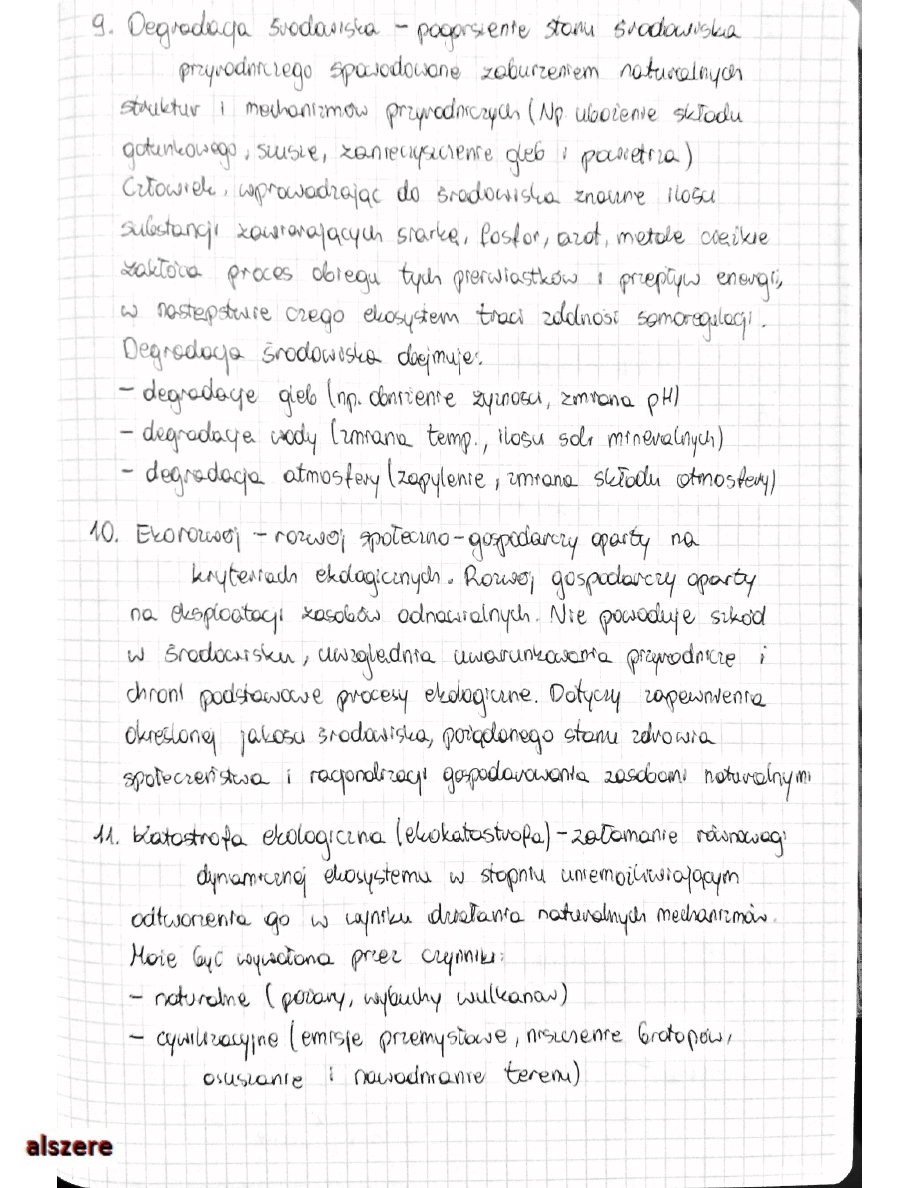 9. Degradacja środowiska – pogorszenie stanu środowiska
przyrodniczego spowodowane zaburzeniem naturalnych
struktur i mechanizmów przyrodniczych (Np. ubożenie składu
gatunkowego, susze, zanieczyszczenie gleb i powietrza)
Człowiek, wprowadzając do środowiska znaczne ilości
substancji zawierających siarkę, fosfor, azot, metale ciężkie
zakłóca proces obiegu tych pierwiastków i przepływ energii,
w następstwie czego ekosystem traci zdolność samoregulacji.
Degradacja środowiska obejmuje:
– degradację gleb (np. obniżenie żyzności, zmiana pH)
– degradacja wody (zmiana temp., ilości soli mineralnych)
– degradacja atmosfery (zapylenie, zmiana składu atmosfery)
10. Ekorozwój – rozwój społeczno-gospodarczy oparty na
kryteriach ekologicznych. Rozwój gospodarczy oparty
na eksploatacji zasobów odnawialnych. Nie powoduje szkód
w środowisku, uwzględnia uwarunkowania przyrodnicze i
chroni podstawowe procesy ekologiczne. Dotyczy zapewnienia
określonej jakości środowiska, pożądanego stanu zdrowia
społeczeństwa i racjonalizacji gospodarowania zasobami naturalnymi
11. Katastrofa ekologiczna (ekokatastrofa) – załamanie równowagi
dynamicznej ekosystemu w stopniu uniemożliwiającym
odtworzenia go w wyniku działania naturalnych mechanizmów.
Może być wywołana przez czynniki:
– naturalne (pożary, wybuchy wulkanów)
– cywilizacyjne (emisje przemysłowe, niszczenie biotopów,
osuszanie i nawadnianie terenu)
alszere